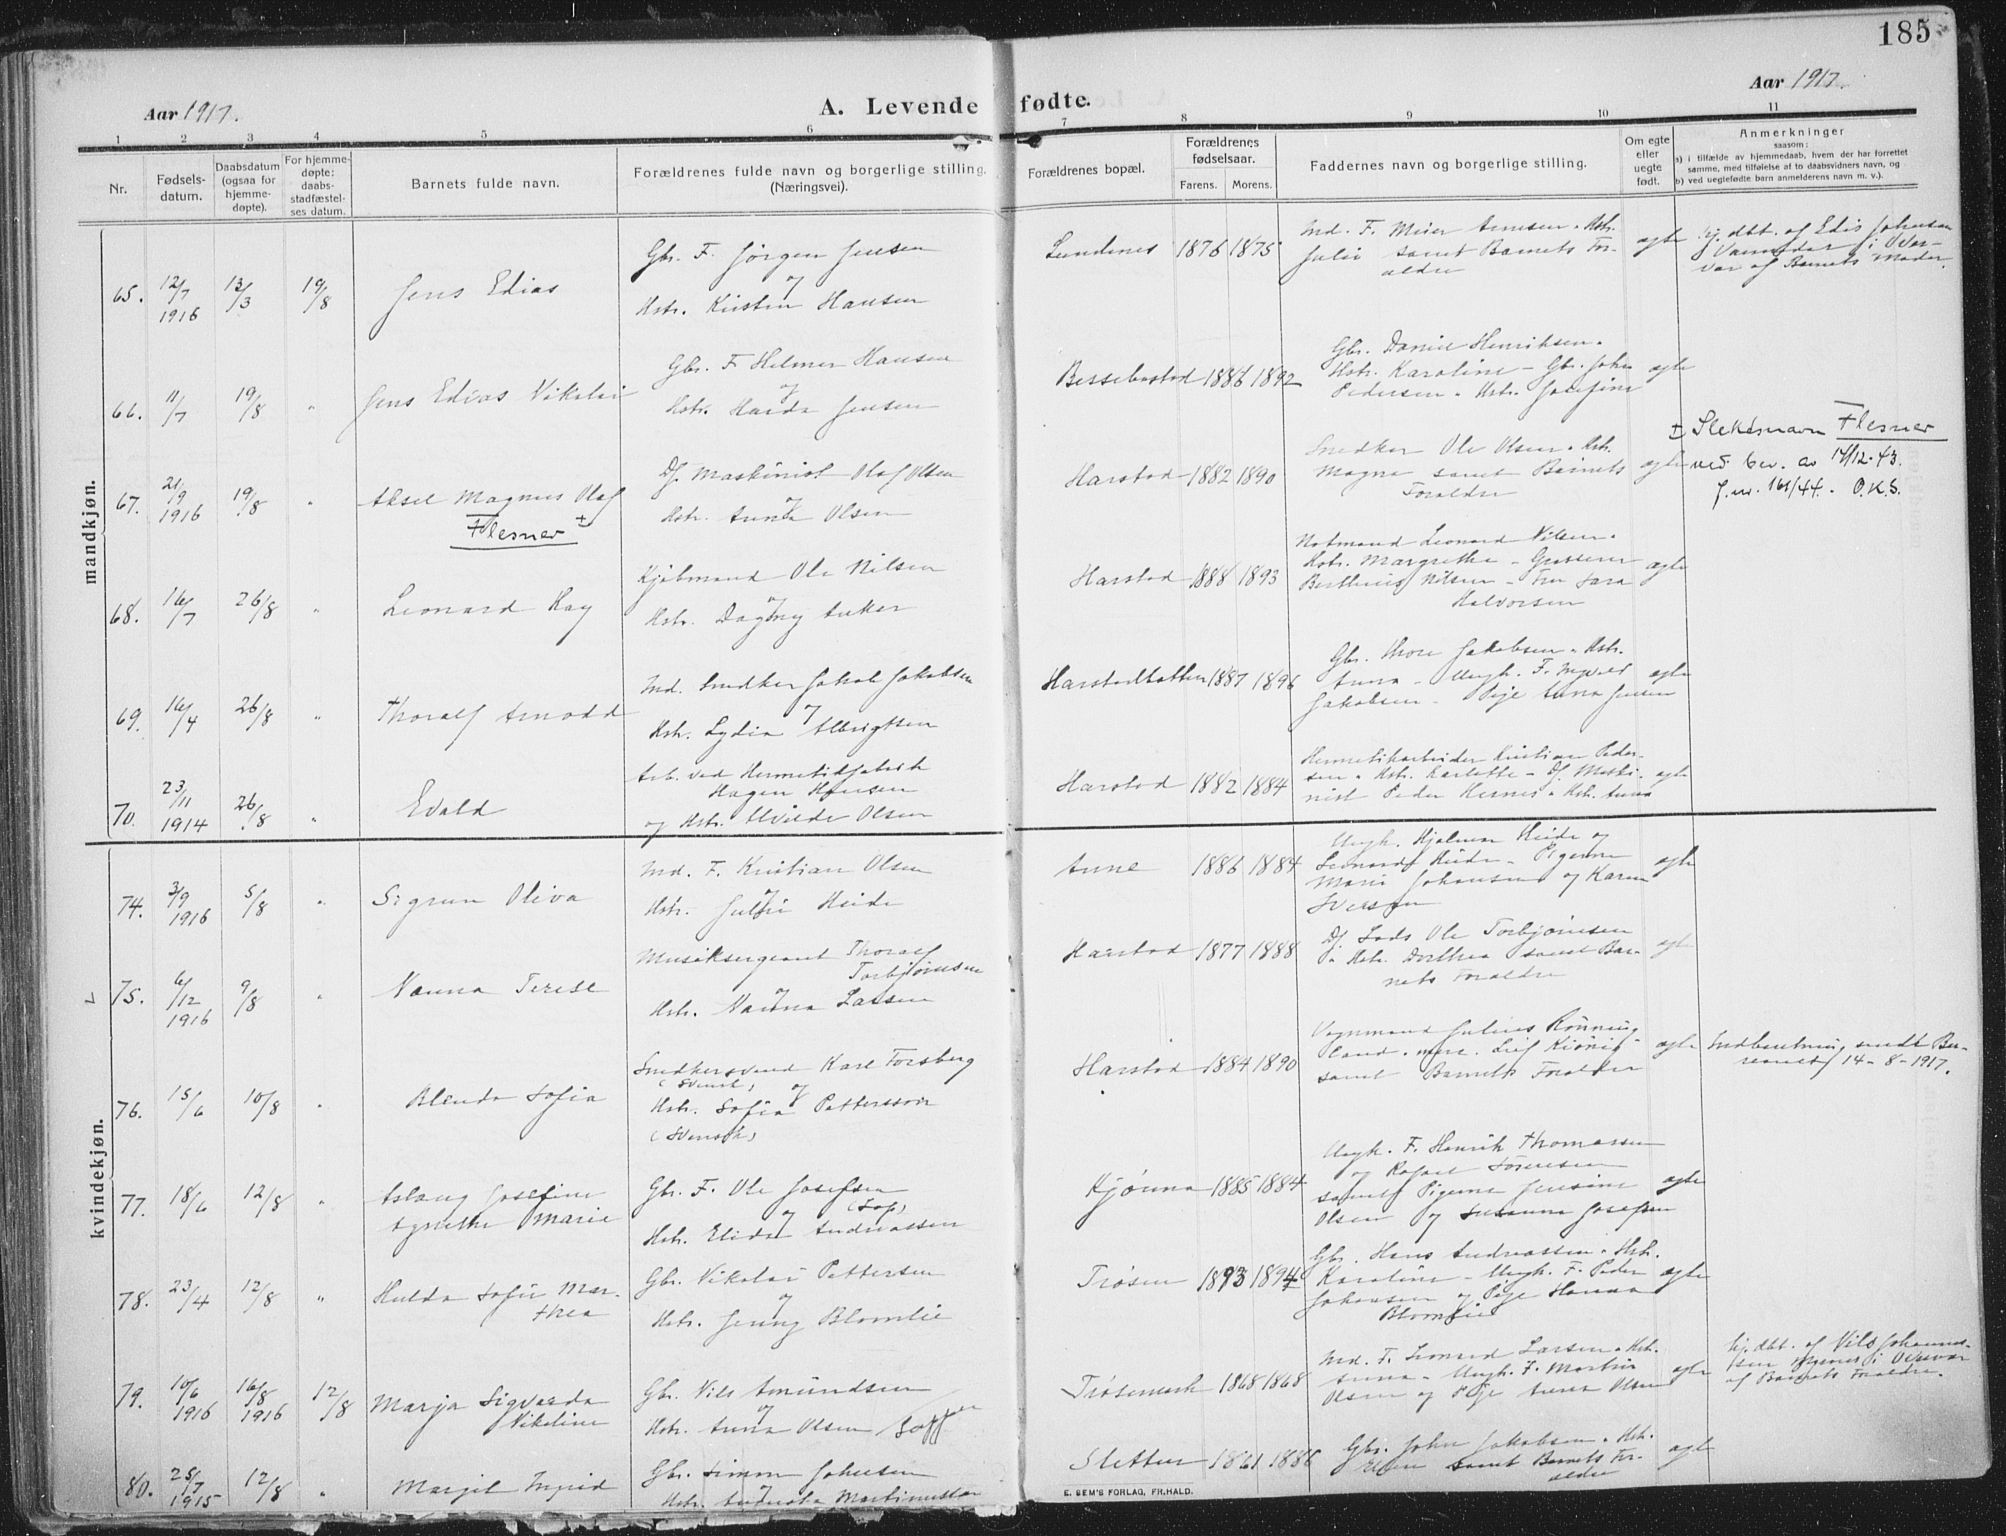 185
Aar 1917.
A. Levende fødte.
Aar 1917.
1 2 3 4 5 6 7 8 9 10 11
Nr.
Fødsels-
datum.
Daabsdatum
(ogsaa for
hjemme-
døpte).
For hjemme-
døpte:
daabs-
stadfæstel-
ses datum.
Barnets fulde navn.
Forældrenes fulde navn og borgerlige stilling.
(Næringsvei).
Forældrenes bopæl.
Forældrenes
fødselsaar.
Farens. Morens.
Faddernes navn og borgerlige stilling.
Om egte
eller
uegte
født.
Anmerkninger
saasom:
a) i tilfælde av hjemmedaab, hvem der har forrettet
samme, med tilføielse af to daabsvidners navn, og
b) ved uegtefødte barn anmelderens navn m. v.).
mandkjøn.
65. 12/7 1916 13/3 19/8 Jens Edias
Gbr. F. Jørgen Jensen
og
Hstr. Kirsten Hansen
Lundenes 1876 1875
Ind. F. Meier Arnesen . Hstr.
Julie samt Barnets For-
ældre
ægte
hj. dbt. af Edis Johnsen
66. 11/7 19/8 " Jens Edias Nikolai
Gbr. F Helmer Hansen
og
Hstr. Handa Jensen
Bessebostad 1886 1892
Gbr. Daniel Henriksen .
Hstr. Karoline - Gbr. John
Pedersen . Hstr. Josefine
ægte
67. 21/9 1916 19/8 " Aksel Magnus Olaf
Flesner ±
Df. Maskinist Olaf Olsen
og
Hstr. Anna Olsen
Harstad 1882 1890
Snedker Ole Olsen . Hstr.
Magna samt Barnets
Forældre
ægte
± Slektsnavn Flesner
ved bev. av 14/12-43.
J.nr. 161/44. O.K.S.
68. 16/7 26/8 " Leonard Kay
Kjøbmand Ole Nilsen
og
Hstr. Dagny Anker
Harstad 1888 1893
Notmand Leonard Nilsen .
Hstr. Margrethe - Grosserer
Berthius Nilsen - Fru Sara
Halvorsen
ægte
69. 16/4 26/8 " Thoralf Arnodd
Ind. Snedker Jakob Jakobsen
og
Hstr. Lydia Albrigtsen
Harstadbotten 1887 1896
Gbr. Thore Jakobsen . Hstr.
Anna - Ungk. F. Ingvald
Jakobsen - Pige Anna Jensen
ægte
70. 23/11 1914 26/8 " Evald
Arb. ved Hermetikfabrik
Hagen Hansen
og Hstr. Alvilde Olsen
Harstad 1882 1884
Hermetikarbeider Kristian Peder-
sen . Hstr. Karlotte - Df. Maski-
nist Peder Hernes . Hstr. Anna
ægte
kvindekjøn.
74. 3/9 1916 5/8 " Sigrun Oliva
Ind. F. Kristian Olsen
og
Hstr. Julie Heide
Aune 1886 1884
Ungk. Hjalmar Heide og
Leonard Heide - Pigerne
Marie Johansen og Karen
Iversen
ægte
75. 6/12 1916 9/8 " Nanna Terese
Musiksergeant Thoralf
Torbjørnsen
og
Hstr. Nanna Larsen
Harstad 1877 1888
Df. Lods Ole Torbjørnsen
. Hstr. Dorthea samt Bar-
nets Forældre
ægte
76. 15/6 10/8 " Blenda Sofia
Snedkersvend Karl Forsberg
(svensk) og
Hstr. Sofia Pettersson
(svensk)
Harstad 1884 1890
Vognmand Julius Rønning-
samt Barnets Forældre
ægte
Indberetning sendt
14-8-1917.
77. 18/6 12/8 " Aslaug Josefine
Agnethe Marie
Gbr. F. Ole Josefsen
og (Lap)
Hstr. Elida Andreassen
Kjønna 1885 1884
Ungk. F. Henrik Thomassen
og Rafael Sørensen
samt Pigerne Jensine
Olsen og Susanna Josefsen
ægte
78. 23/4 12/8 " Hulda Sofie Mar-
thea
Gbr. Nikolai Pettersen
og
Hstr. Jenny Blomlie
Trøsen 1893 1894
Gbr. Hans Andreassen . Hstr.
Karoline - Ungk. F. Peder
Johansen og Pige Hanna
Blomlie
ægte
79. 10/6 1916 16/8 1916 12/8 Marja Sigvarda
Nikoline
Gbr. Nils Amundsen
og
Hstr. Anna Olsen Lapper
Trøsemark 1868 1868
Ind. F. Leonard Larsen . Hstr.
Anna - Ungk. F. Martin
Olsen og Pige Anna Olsen
ægte
af Barnets Forældre.
80. 25/7 1915 12/8 " Margit Ingrid
Gbr. Simon Johnsen
Hstr. Andrea Martinussen
Sletten 1861 1886
Gbr. John Jakobsen . Hstr.
Ellen samt Barnets For-
ældre
ægte
E. SEM'S FORLAG, FR.HALD.